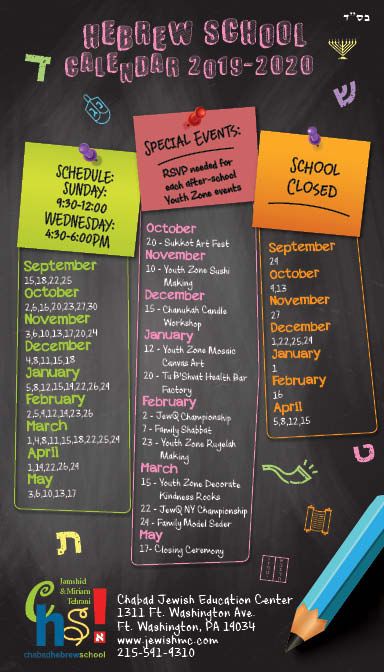 בס"ד
HEBREW SCHOOL
CALENDAR 2019-2020
ד
ש
SCHEDULE:
SUNDAY:
9:30-12:00
WEDNESDAY:
4:30-6:00PM
September
15,18,22,25
October
2,6,16,20,23,27,30
November
3,6,10,13,17,20,24
December
4,8,11,15,18
January
5,8,12,15,19,22,26,29
February
2,5,9,12,19,23,26
March
1,4,8,11,15,18,22,25,29
April
1,19,22,26,29
May
3,6,10,13,17
SPECIAL EVENTS:
RSVP needed for
each after-school
Youth Zone events
October
20 - Sukkot Art Fest
November
10 - Youth Zone Sushi
Making
December
15 - Chanukah Candle
Workshop
January
12 - Youth Zone Mosaic
Canvas Art
20 - Tu B'Shvat Health Bar
Factory
February
2 - JewQ Championship
7 - Family Shabbat
23 - Youth Zone Rugelah
Making
March
15 - Youth Zone Decorate
Kindness Rocks
22 - JewQ NY Championship
29 - Family Model Seder
May
17- Closing Ceremony
SCHOOL
CLOSED
September
29
October
9,13
November
27
December
1,22,25,29
January
1
February
16
April
5,8,12,15
ט
ת
Jamshid
& Miriam
Tehrani
Chs!
א
chabadhebrewschool
Chabad Jewish Education Center
1311 Ft. Washington Ave.
Ft. Washington, PA 19034
www.jewishmc.com
215-591-9310